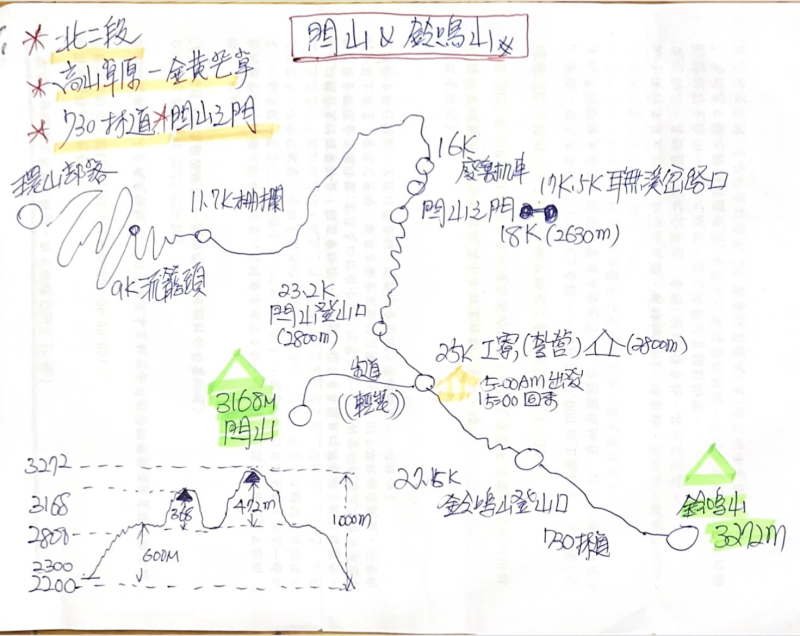 閂山 & 鈴鳴山
北二段
高山草原-金黃芒草
730林道 閂山之門
環山部落
11.7K柵欄
16K
廢棄机車
17K.5K 耳無溪岔路口
閂山之門
18K (2630m)
9K 流籠頭
23.2K
閂山登山口
(2800m)
25K 工寮(紮營) (2800m)
5:00AM 出發
15:00 回來
(輕裝)
3168M
閂山
27.15K
鈴鳴山登山口
730林道
鈴鳴山
3272m
3272
3168
2800
2300
2200
368
472m
600M
1000m